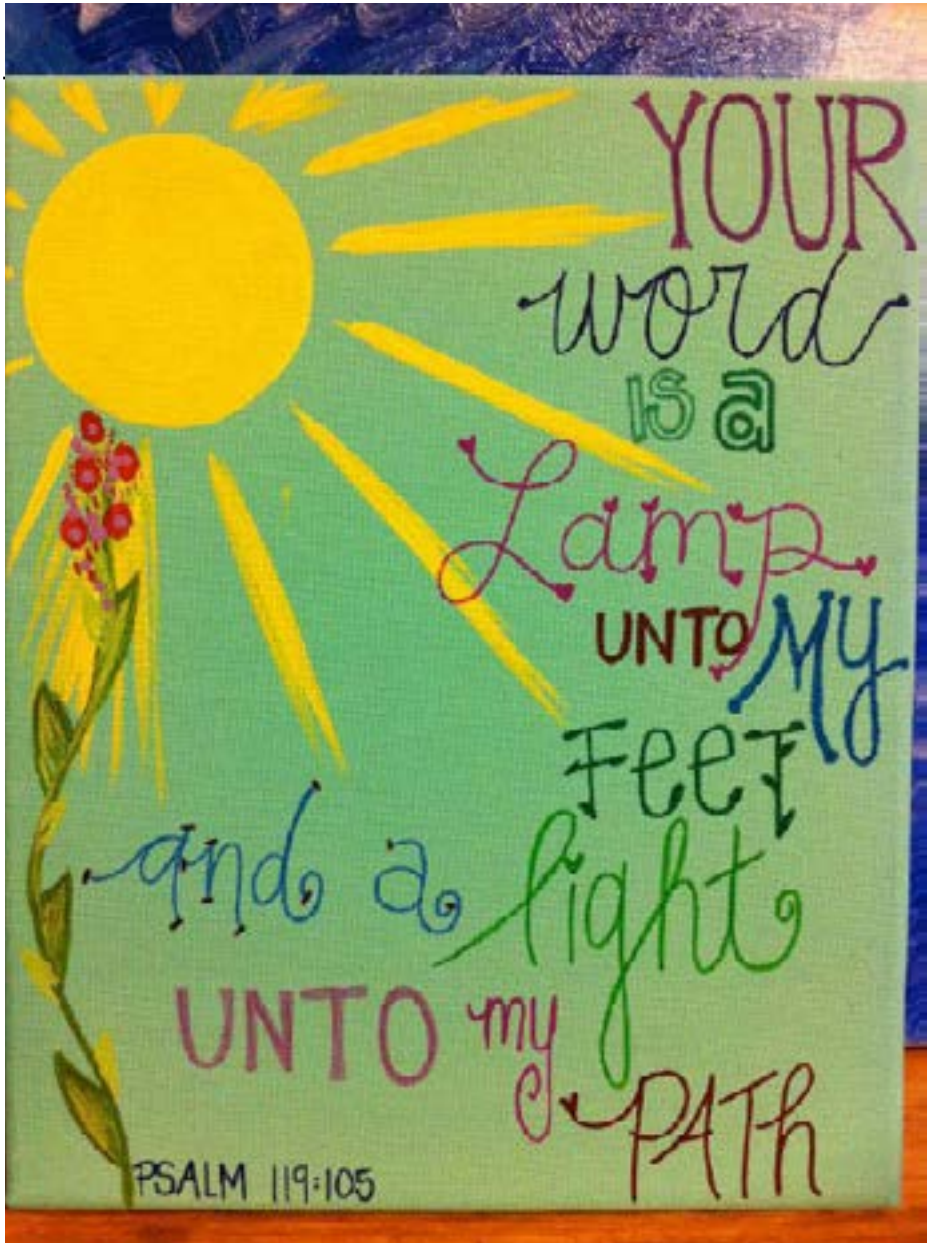 YOUR
word
is a
Lamp
UNTO MY
FEET
and a light
UNTO my
PATh
PSALM 119:105